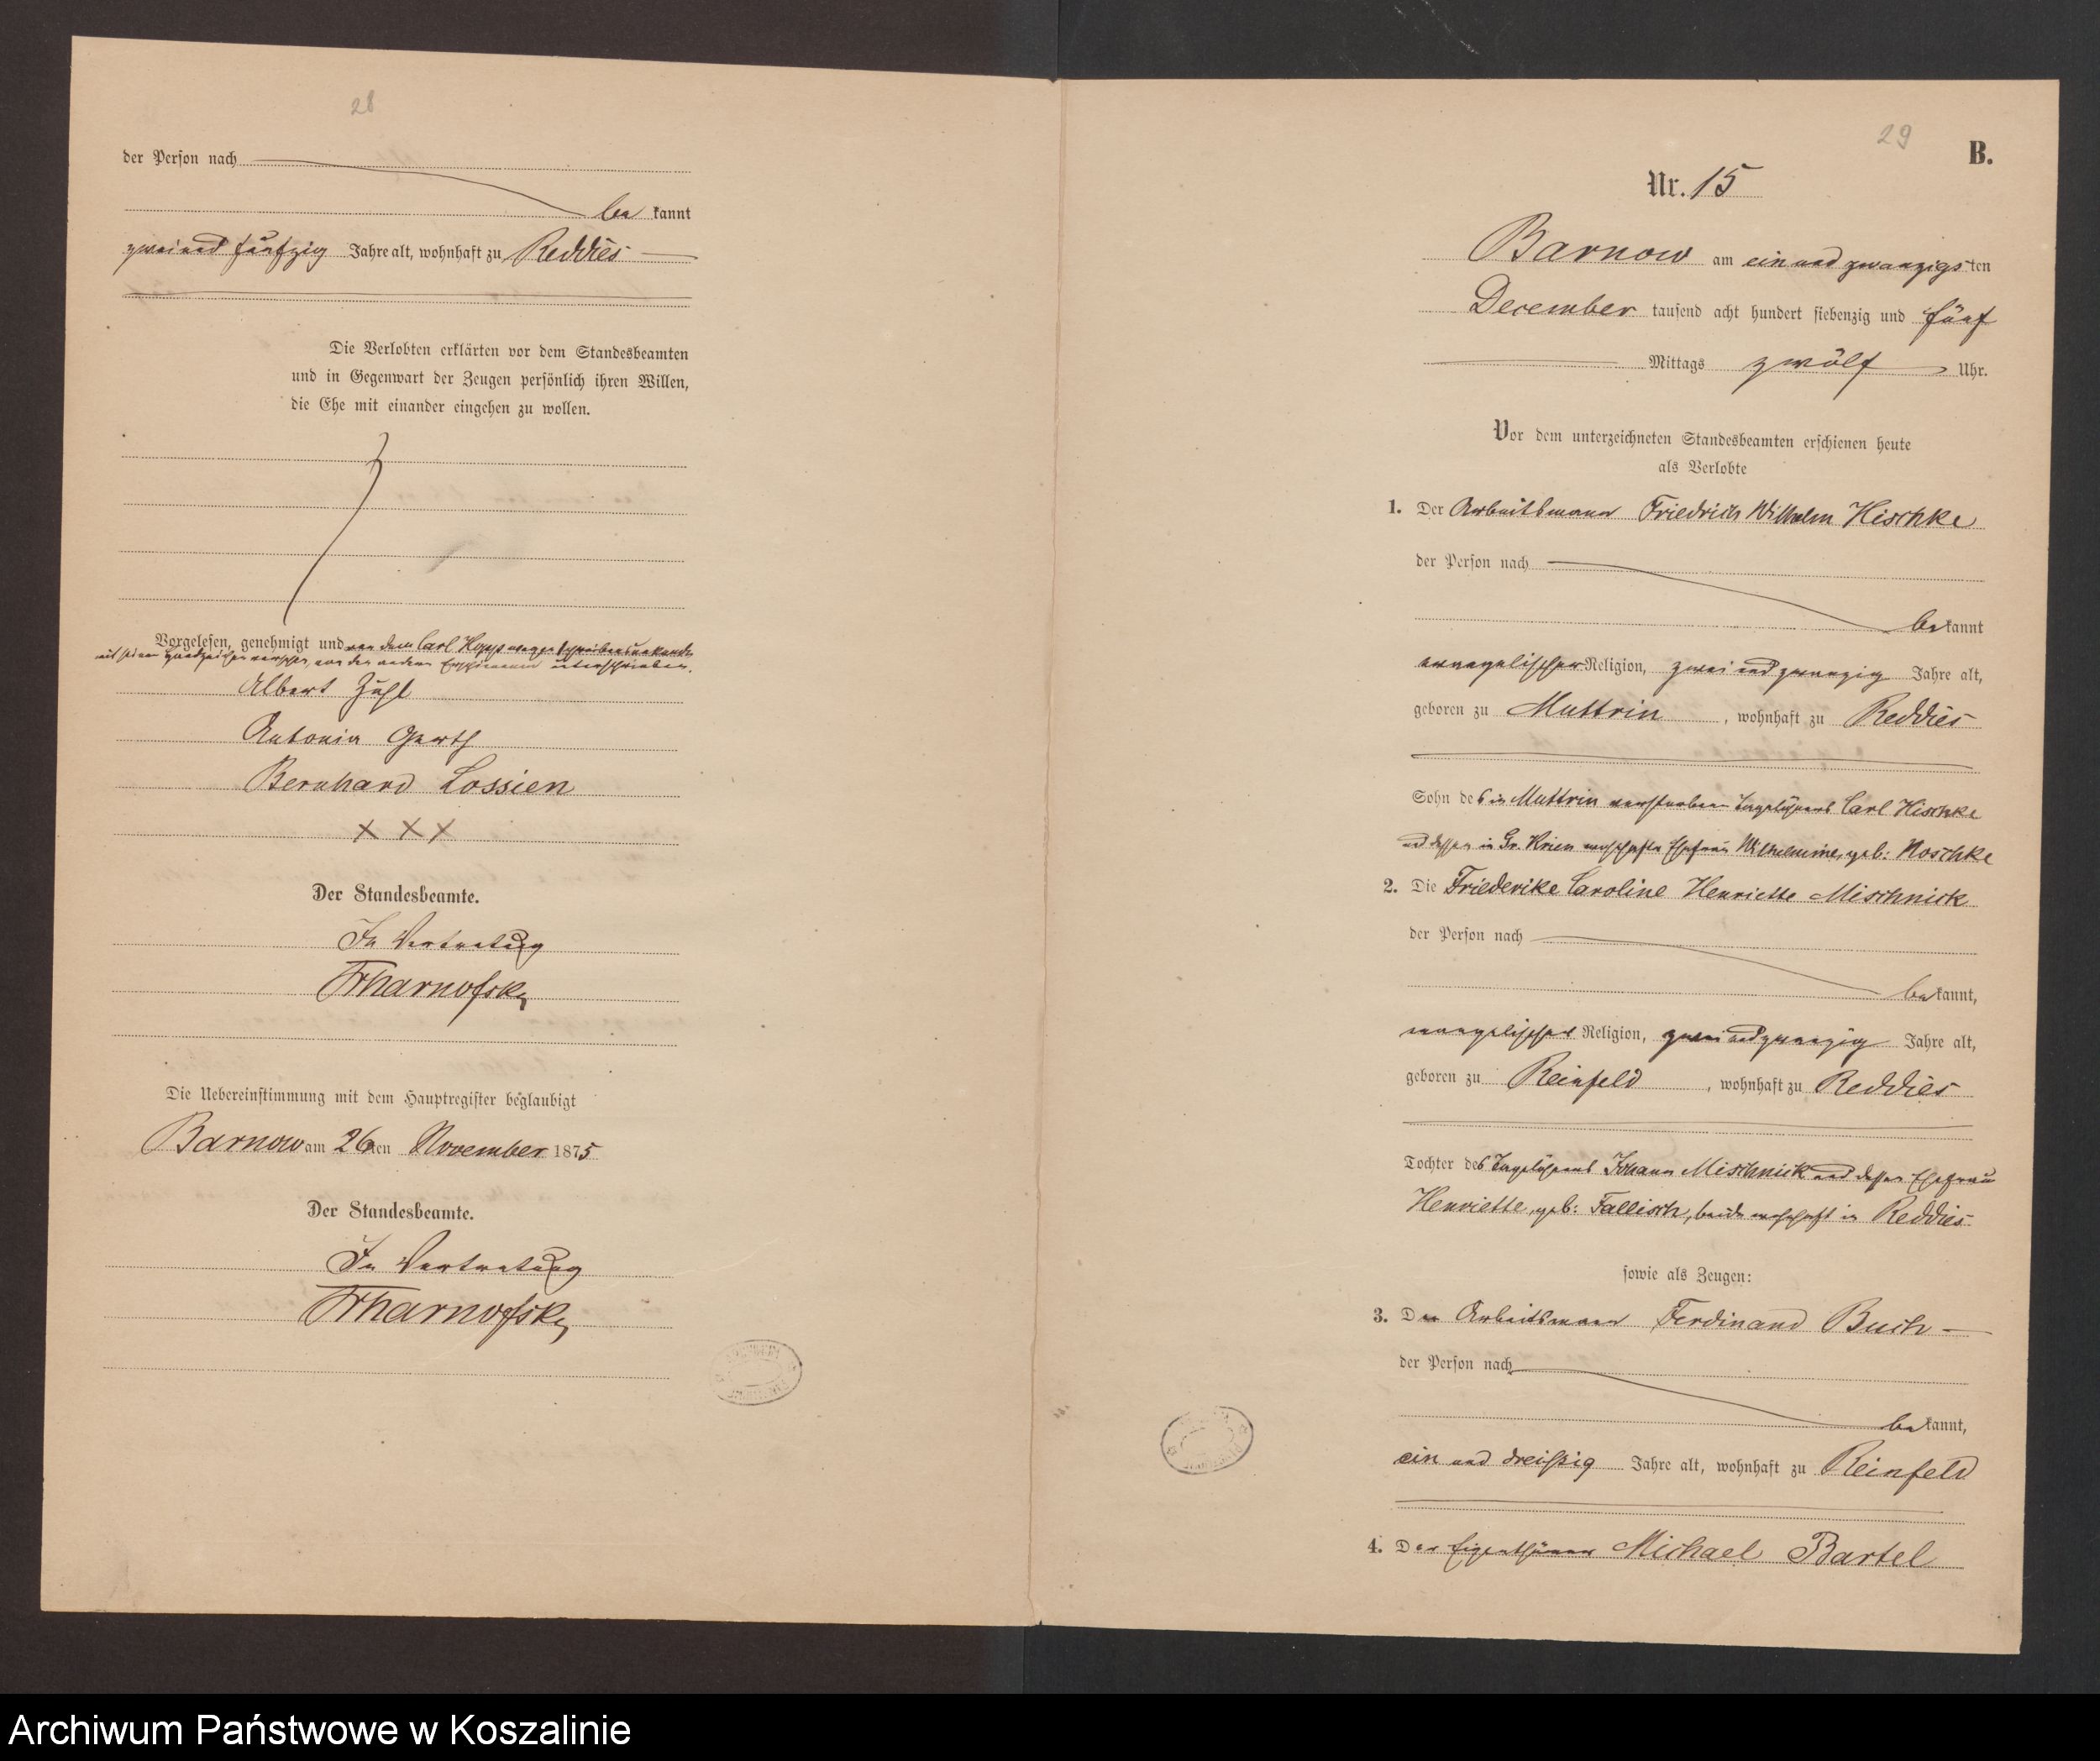 28
der Person nach
be kannt
zwei und fünfzig Jahre alt, wohnhaft zu Reddies
Die Verlobten erklärten vor dem Standesbeamten
und in Gegenwart der Zeugen persönlich ihren Willen,
die Ehe mit einander eingehen zu wollen.
Vorgelesen, genehmigt und von dem Carl Hopp wegen Schreibensunkunde
mit seinem Handzeichen versehen, von den anderen Erschienenen unterschrieben.
Albert Zuhl
Antonia Gerth
Bernhard Lossien
X X X
Der Standesbeamte.
In Vertretung
Die Uebereinstimmung mit dem Hauptregister beglaubigt
Barnow am 26ten November 1875
Der Standesbeamte.
In Vertretung
29
B.
Nr. 15
Barnow am ein und zwanzigsten
December tausend acht hundert siebenzig und fünf
Mittags zwölf Uhr.
Vor dem unterzeichneten Standesbeamten erschienen heute
als Verlobte
1. Der Arbeitsmann Friedrich Wilhelm Hischke
der Person nach
be kannt
evangelischer Religion, zwei und zwanzig Jahre alt,
geboren zu Muttrin, wohnhaft zu Reddies
Sohn des in Muttrin verstorbenen Tagelöhners Carl Hischke
und dessen in Gr. Krien wohnhafte Ehefrau Wilhelmine, geb: Noschke
2. Die Friederike Caroline Henriette Mischnick
der Person nach
be kannt,
evangelischer Religion, zwei und zwanzig Jahre alt,
geboren zu Reinfeld, wohnhaft zu Reddies
Tochter des Tagelöhners Johann Mischnick und dessen Ehefrau
Henriette, geb: Fallisch, beide wohnhaft in Reddies
sowie als Zeugen:
3. Der Arbeitsmann Ferdinand Buch
der Person nach
be kannt,
ein und dreißig Jahre alt, wohnhaft zu Reinfeld
4. Der Eigenthümer Michael Bartel
Archiwum Państwowe w Koszalinie